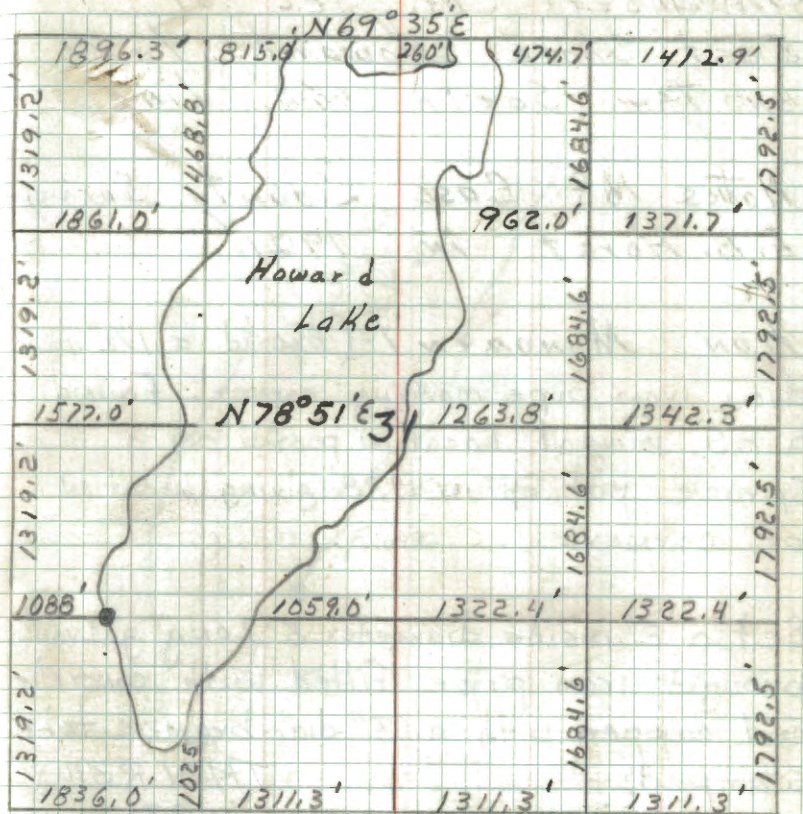 N69°35'E
1896.3' 815.0' 260' 474.7' 1412.9'
1319.2' 1468.8' 1684.6' 1792.5'
1861.0' 962.0' 1371.7'
Howard
Lake
1319.2' 1684.6' 1792.5'
1577.0' N78°51'E 31 1263.8' 1342.3'
1319.2' 1684.6' 1792.5'
1088' 1059.0' 1322.4' 1322.4'
1319.2' 1025 1684.6' 1792.5'
1836.0' 1311.3' 1311.3' 1311.3'